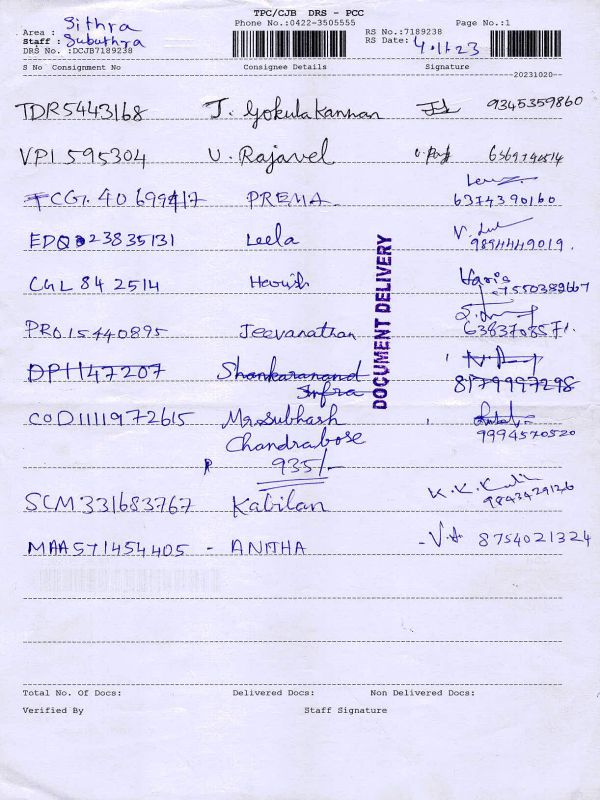 TPC/CJB DRS - PCC
Phone No.:0422-3505555 Page No.:1
Area : Sithra
Staff : Subuthra
DRS No. :DCJB7189238
RS No.:7189238
RS Date: 4.11.23
S No Consignment No Consignee Details Signature
--20231020--
TDR5443168 J. Gokulakannan 9345359860
VPI 595304 U. Rajavel
PREMA 6374390160
EDQ 23835131 Leela 9894449019.
CGL 84 2514 Harish Haris
7550389667
PRO.15440895 Jeevanathan
DP1147207 Shankaranand
Infra 8179997298
COD1111972615 Mr.Subhash
Chandrabose 9994570520
935/-
SCM331683767 Kabilan K.K.
9843429126
MAA571454405 - ANITHA 8754021324
DOCUMENT DELIVERY
Total No. Of Docs: Delivered Docs: Non Delivered Docs:
Verified By Staff Signature